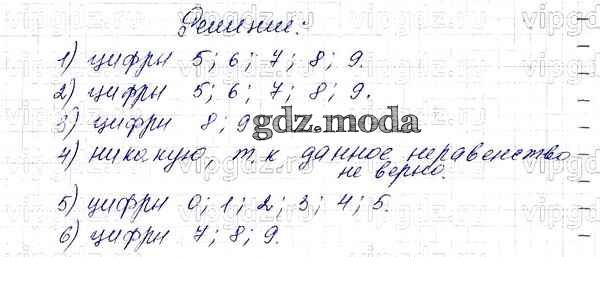 Решение:
1) цифры 5; 6; 7; 8; 9.
2) цифры 5; 6; 7; 8; 9.
3) цифри 8; 9
gdz.moda
4) никакую, т.к данное неравенство
не верно.
5) цифры 0; 1; 2; 3; 4; 5.
6) цифры 7; 8; 9.